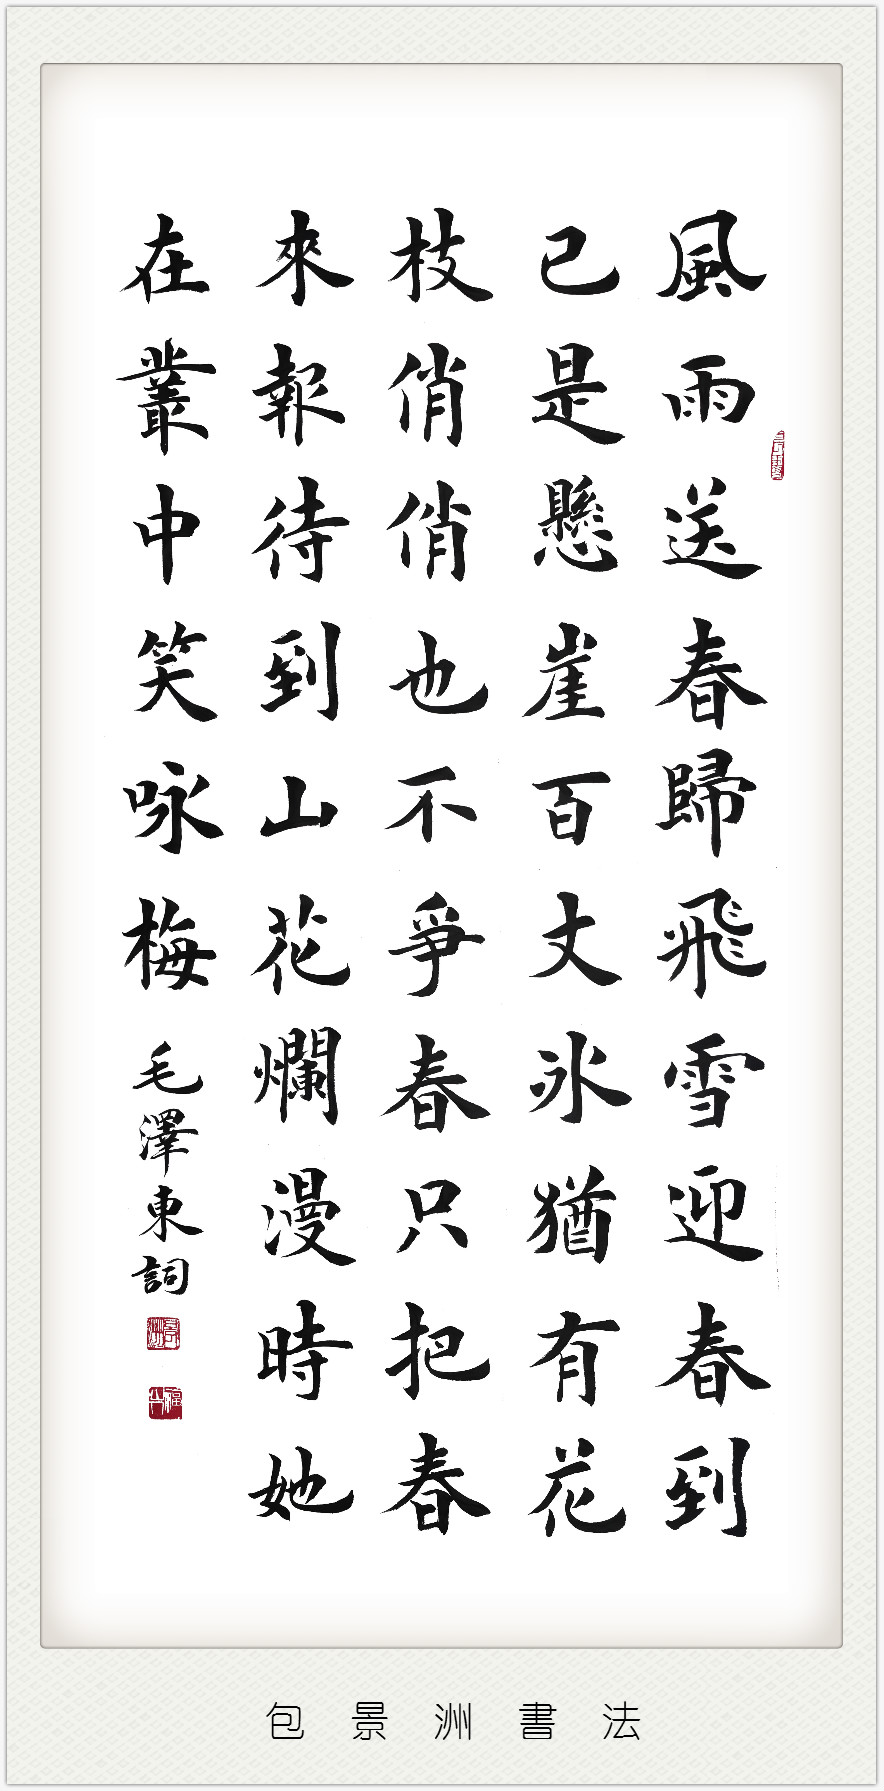 風雨送春歸飛雪迎春到
已是懸崖百丈冰猶有花
枝俏俏也不爭春只把春
來報待到山花爛漫時她
在叢中笑咏梅毛澤東詞
包景洲書法